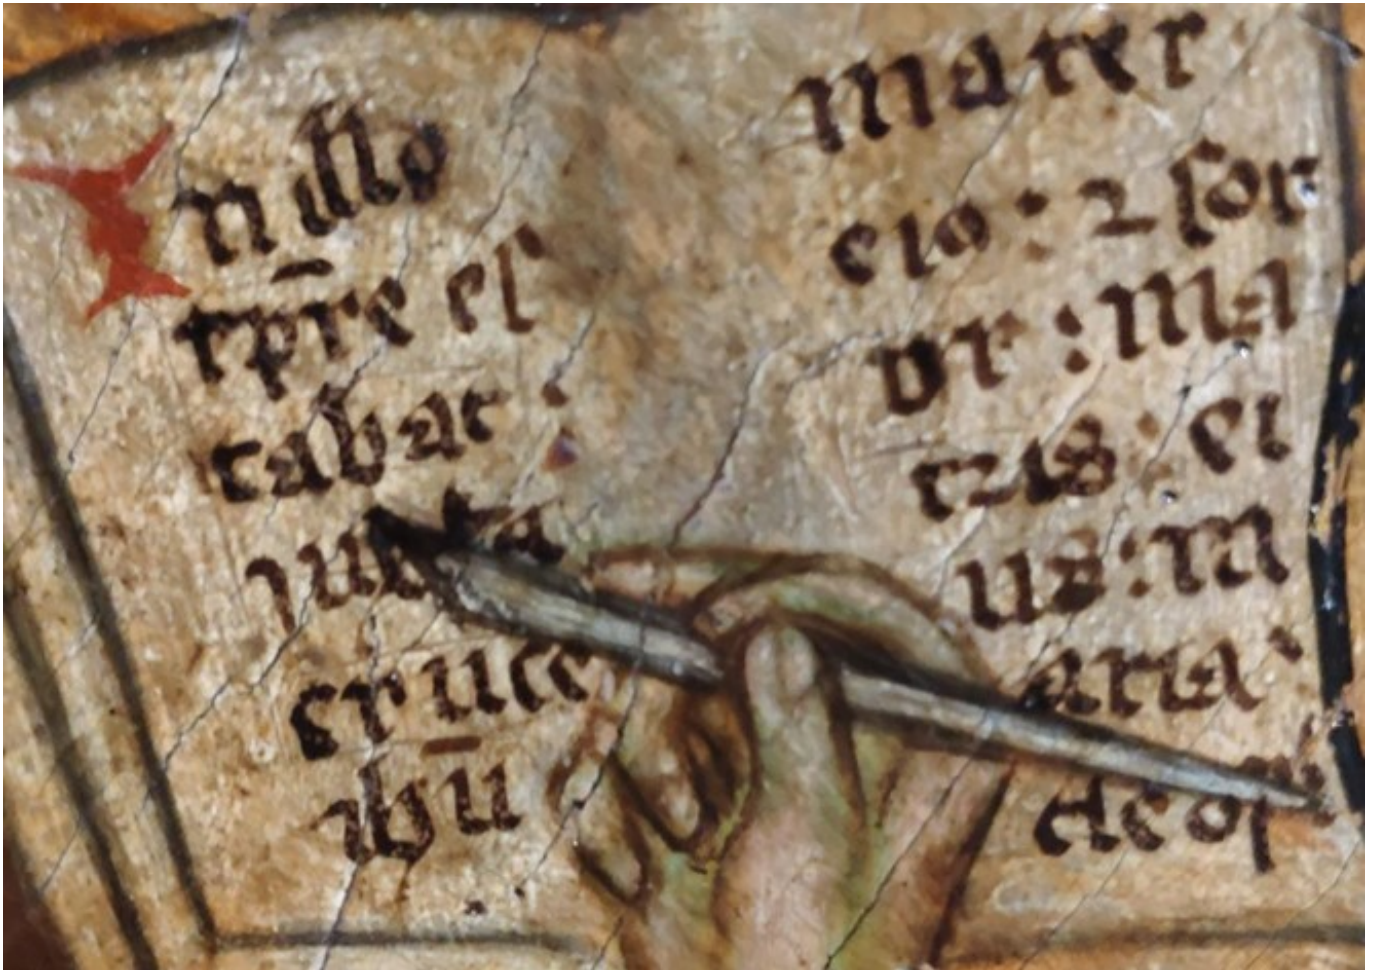 In illo
tp̄re es
tabat :
iuxta
cruce
ihū
mater
eio : 2 sor
or : ma
tris : ei
us : m
aria
cleop